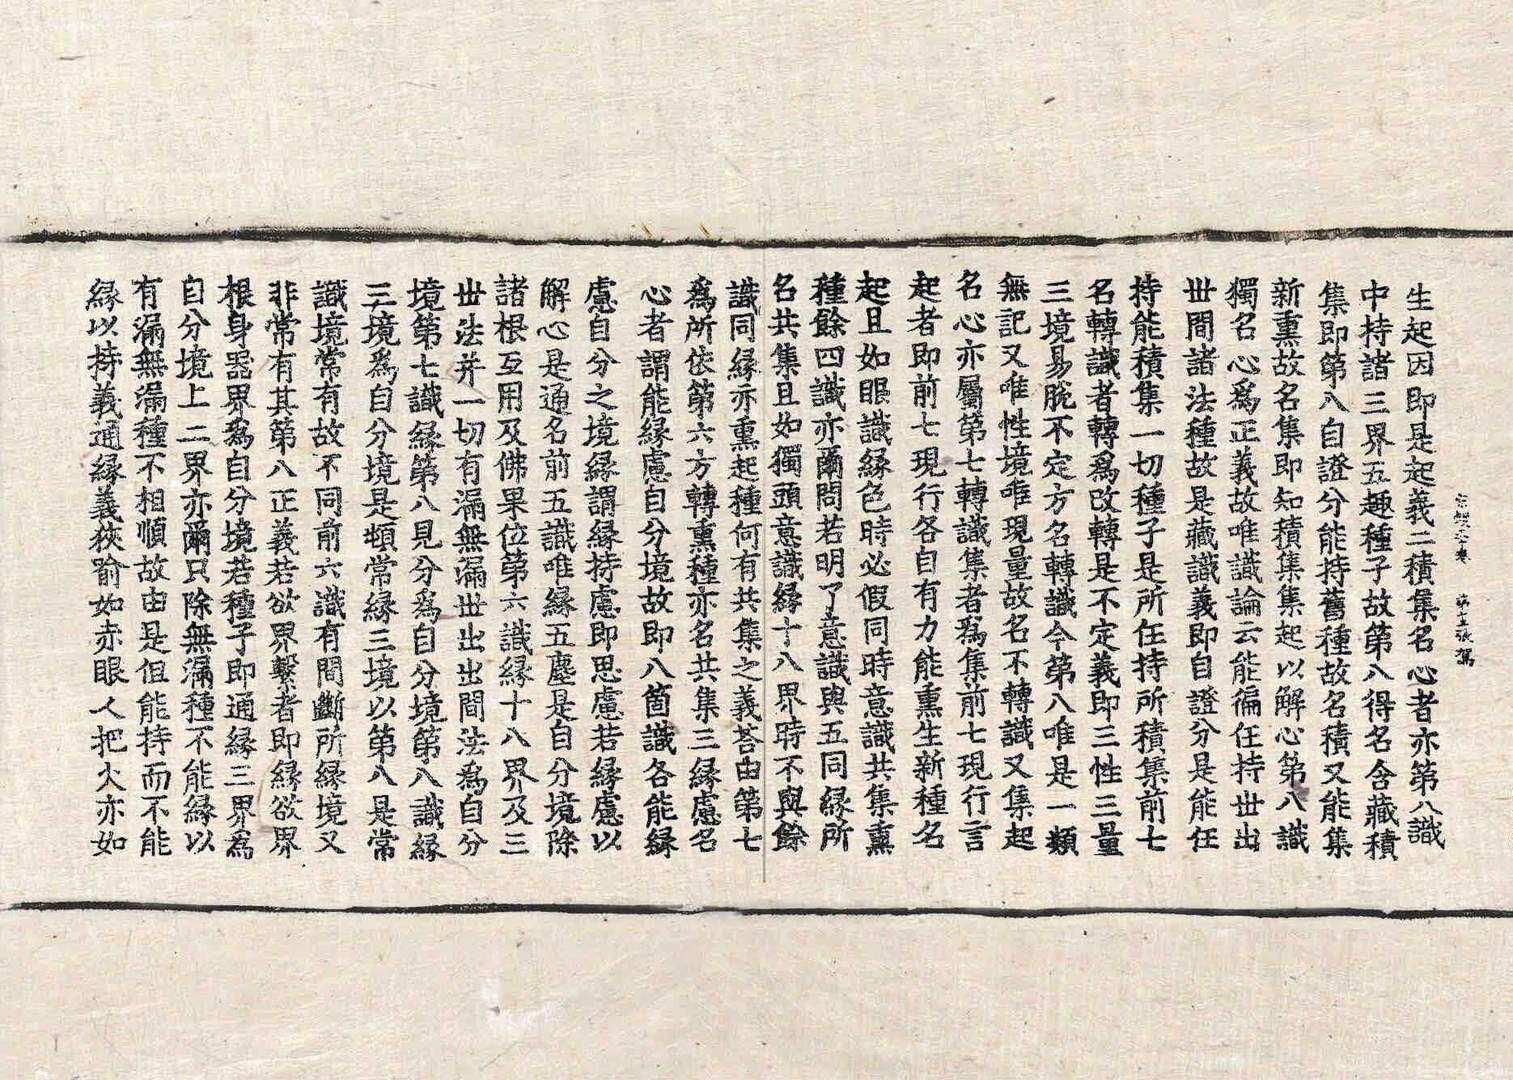 宗鏡 卷 第 張 駕
生起因即是起義二積集名心者亦第八識
中持諸三界五趣種子故第八得名含藏積
集即第八自證分能持舊種故名積又能集
新熏故名集即知積集集起以解心第八識
獨名心爲正義故唯識論云能徧任持世出
世間諸法種故是藏識義即自證分是能任
持能積集一切種子是所任持所積集前七
名轉識者轉爲改轉是不定義即三性三量
三境易脫不定方名轉識今第八唯是一類
無記又唯性境唯現量故名不轉識又集起
名心亦屬第七轉識集者爲集前七現行言
起者即前七現行各自有力能熏生新種名
起且如眼識緣色時必假同時意識共集熏
種餘四識亦爾問若明了意識與五同緣所
名共集且如獨頭意識緣十八界時不與餘
識同緣亦熏起種何有共集之義荅由第七
爲所依第六方轉熏種亦名共集三緣慮名
心者謂能緣慮自分境故即八箇識各能緣
慮自分之境緣謂緣持慮即思慮若緣慮以
解心是通名前五識唯緣五塵是自分境除
諸根互用及佛果位第六識緣十八界及三
世法并一切有漏無漏世出出間法爲自分
境第七識緣第八見分爲自分境第八識緣
三境爲自分境是頓常緣三境以第八是常
識境常有故不同前六識有間斷所緣境又
非常有其第八正義若欲界繫者即緣欲界
根身器界爲自分境若種子即通緣三界爲
自分境上二界亦爾只除無漏種不能緣以
有漏無漏種不相順故由是但能持而不能
緣以持義通緣義狹喻如赤眼人把火亦如